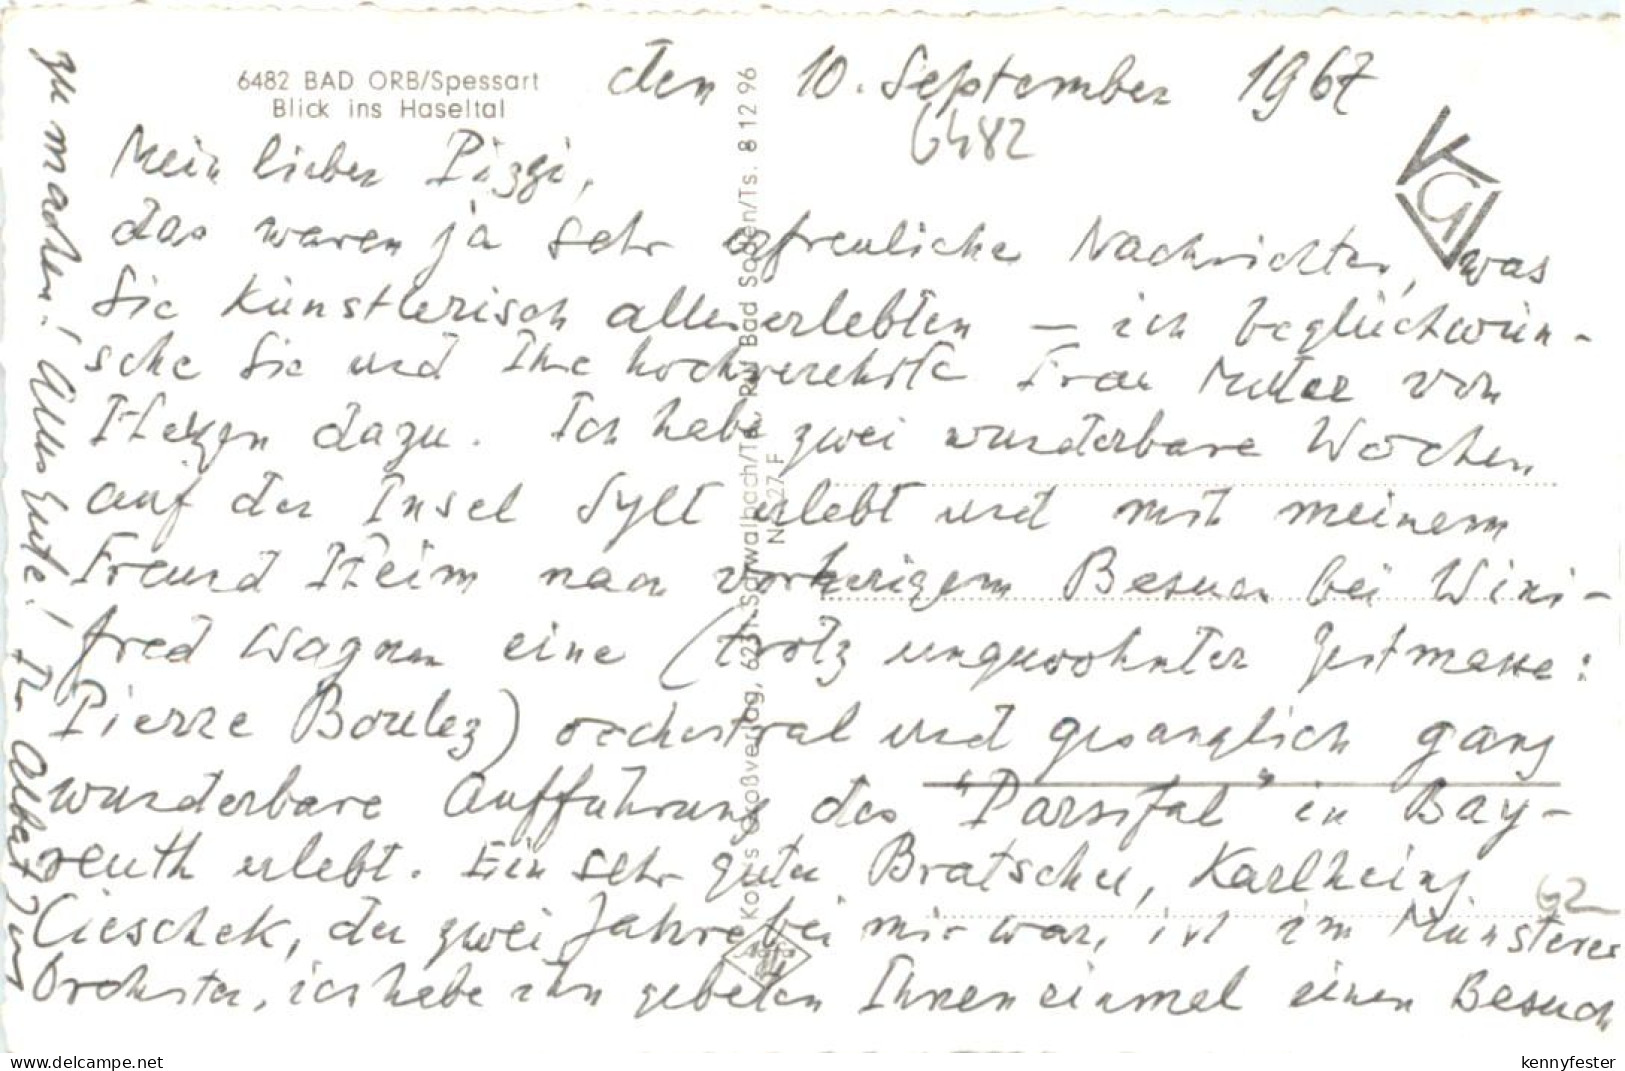 6482 BAD ORB/Spessart
Blick ins Haseltal
den 10. September 1967
6482
KG
Mein lieber Pizzi,
das waren ja sehr erfreuliche Nachrichten, was
Sie künstlerisch alles erlebten – ich beglückwün-
sche Sie und Ihre hochverehrte Frau Mutter von
Herzen dazu. Ich habe zwei wunderbare Wochen
auf der Insel Sylt erlebt und mit meinem
Freund Heim nach vorherigem Besuch bei Wini-
fred Wagner eine (trotz ungewohnter Zeitmasse:
Pierre Boulez) orchestral und gesanglich ganz
wunderbare Aufführung des "Parsifal" in Bay-
reuth erlebt. Ein sehr guter Bratscher, Karlheinz
Cieschek, der zwei Jahre bei mir war, ist im Münsterer
Orchester, ich habe ihn gebeten Ihnen einmal einen Besuch
zu machen! Alles Gute! Ihr Albert
62
Großverlag, Schwalbach/Ts, Bad Soden/Ts. 8 12 96
N 27 F
Agfa
delcampe.net
kennyfester